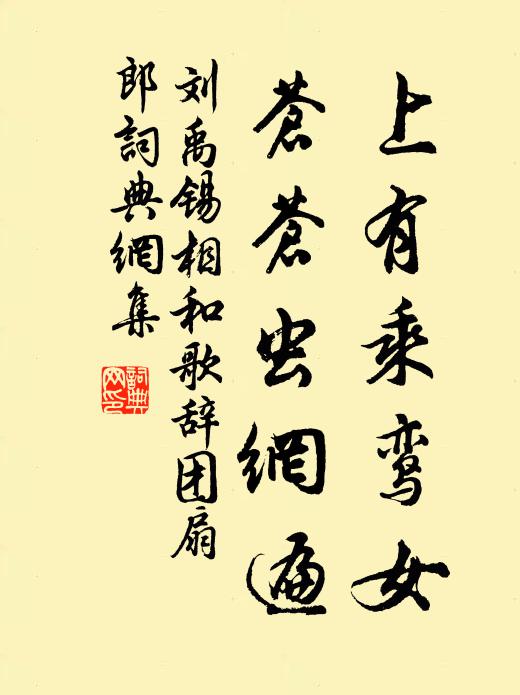 上有乘鸾女
苍苍虫網遍
刘禹锡相和歌辞团扇
郎詞典網集
詞典
网印